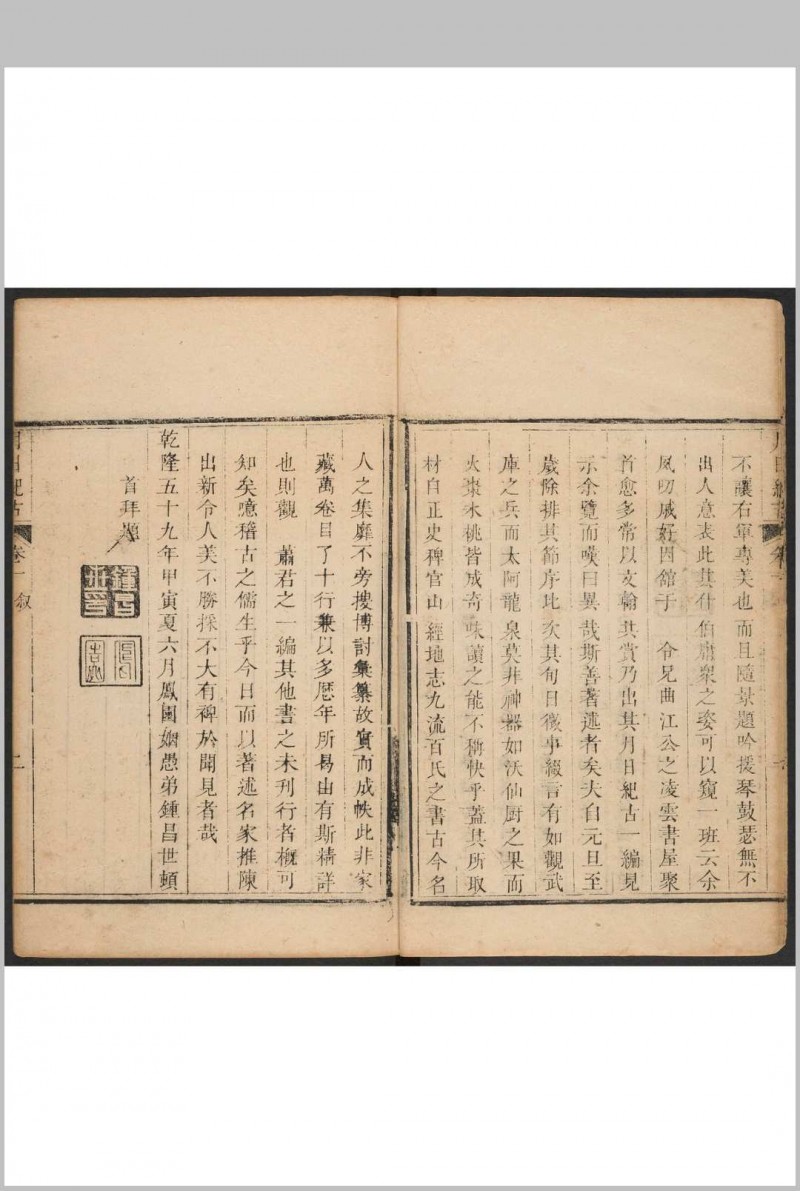 不讓右軍專美也而且隨景題吟援琴鼓瑟無不
出人意表此其什伯庸衆之姿可以窺一班云余
夙叨戚好因館于 令兄曲江公之凌雲書屋聚
首愈多常以文翰共賞乃出其月日紀古一編見
示余覽而嘆曰異哉斯善著述者矣夫自元旦至
歲除排其節序比次其旬日徴事綴言有如觀武
庫之兵而太阿龍泉莫非神器如沃仙厨之果而
火棗氷桃皆成奇味讀之能不稱快乎蓋其所取
材自正史稗官山經地志九流百氏之書古今名
人之集靡不旁搜博討彙纂故實而成帙此非家
藏萬卷目了十行兼以多歴年所曷由有斯精詳
也則觀 蕭君之一編其他書之未刊行者概可
知矣噫稽古之儒生乎今日而以著述名家推陳
出新令人美不勝採不大有裨於聞見者哉
乾隆五十九年甲寅夏六月鳳園姻愚弟鍾昌世頓
首拜題
月日紀古 卷一 叙 二